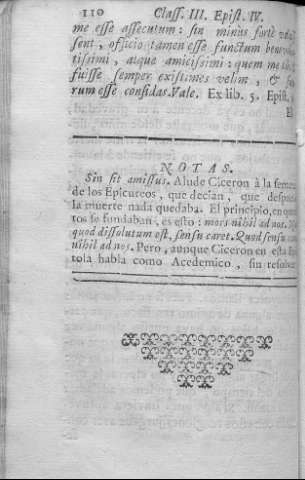 110 Class. III. Epist. IV.
me esse assecutum: sin minus fortè
sent, officio tamen esse functum
tissimi, atque amicissimi: quem me
fuisse semper existimes velim, &
rum esse confidas. Vale. Ex lib. 5. Epist.
El
NOTAS.
Sin sit amissus. Alude Ciceron à la
de los Epicureos, que decian, que
la muerte nada quedaba. El principio, en
tos se fundaban, es esto: mors nihil ad nos.
quod dissolutum est, sensu caret. Quod sensu
nihil ad nos. Pero, aunque Ciceron en esta
tola habla como Academico, sin